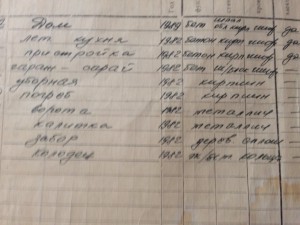 Дом 1989 бет
лет кухня 1982 бетон кирп шиф да
пристройка 1982 бетон кирп шиф да
гараж - сарай 1982 бет шиф да
уборная 1982 кирпич
погреб 1982 кирпич
ворота 1982 металлич
калитка 1982 металлич
забор 1982 дерев
колодец 1982 ж/бет кольца